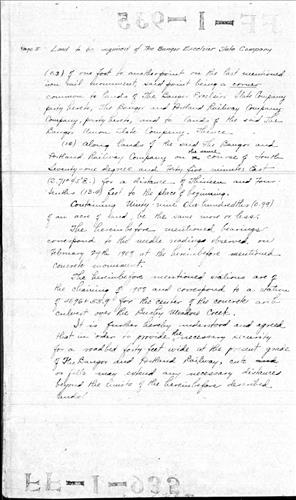 FF-I-935
Page 5 Land to be required of The Bangor Excelsior Slate Company
of one foot to another point on the last mentioned
iron rail monument, said point being a corner
common to lands of The Bangor Excelsior Slate Company
party hereto, The Bangor and Portland Railway Company
Company, party hereto, and to lands of the said The
Bangor Union Slate Company. Thence
(10) along lands of the said The Bangor and
Portland Railway Company on a course of South
Seventy-one degrees and forty five minutes East
for a distance of Thirteen and four-
tenths (13.4) feet to the place of beginning.
Containing Ninety-nine One hundredths (0.99)
of an acre of land, be the same more or less.
The hereinbefore mentioned bearings
correspond to the needle readings observed, on
February 24th 1909 at the hereinbefore mentioned
concrete monument.
The hereinbefore mentioned stations are of
the chaining of 1909 and correspond to a station
of for the center of the concrete arch
culvert over the Brushy Meadow Creek.
It is further hereby understood and agreed
that in order to provide the necessary security
for a roadbed forty feet wide at the present grade
of The Bangor and Portland Railway, cuts
or fills may extend any necessary distances
beyond the limits of the hereinbefore described
lands.
FF-I-935